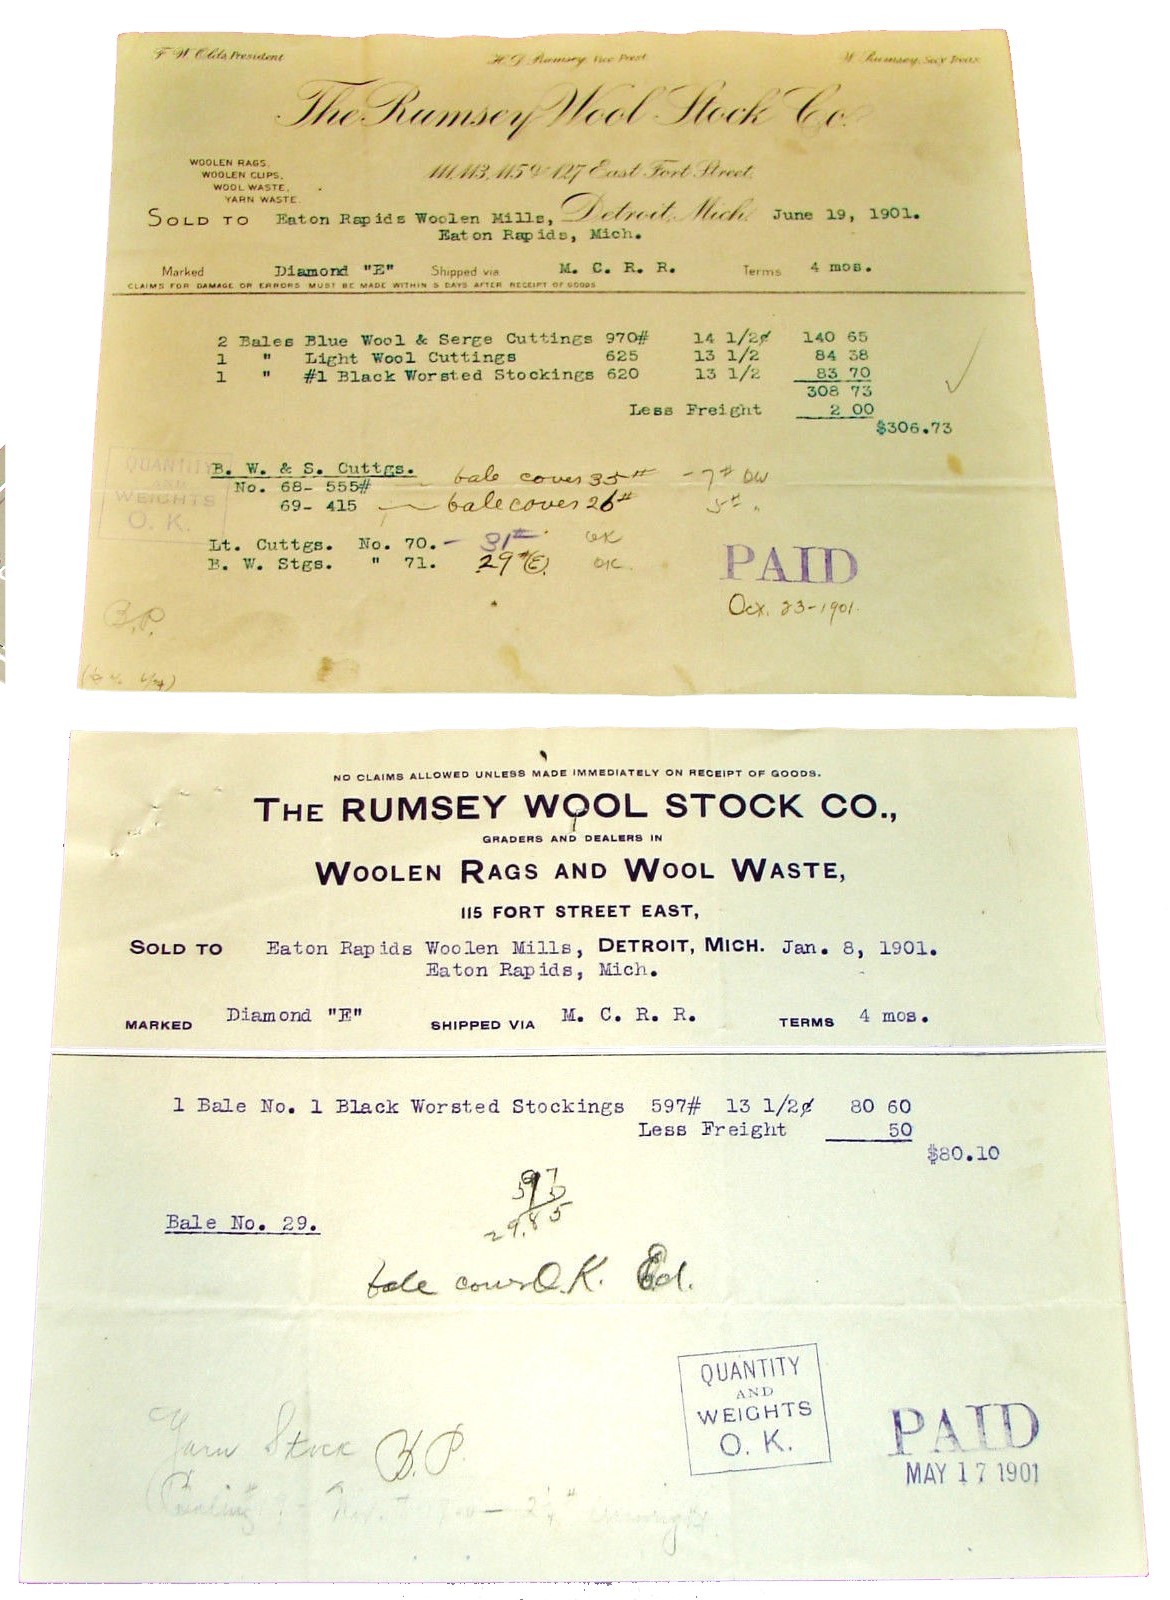 F. W. Olds, President H. D. Rumsey, Vice Prest W. Rumsey, Sec'y Treas.
The Rumsey Wool Stock Co.
WOOLEN RAGS,
WOOLEN CLIPS,
WOOL WASTE,
YARN WASTE.
111, 113, 115 & 127 East Fort Street,
SOLD TO Eaton Rapids Woolen Mills, Detroit, Mich. June 19, 1901.
Eaton Rapids, Mich.
Marked Diamond "E" Shipped via M. C. R. R. Terms 4 mos.
CLAIMS FOR DAMAGE OR ERRORS MUST BE MADE WITHIN 5 DAYS AFTER RECEIPT OF GOODS
2 Bales Blue Wool & Serge Cuttings 970# 14 1/2¢ 140 65
1 " Light Wool Cuttings 625 13 1/2 84 38
1 " #1 Black Worsted Stockings 620 13 1/2 83 70
308 73
Less Freight 2 00
$306.73
QUANTITY
AND
WEIGHTS
O. K.
B. W. & S. Cuttgs.
No. 68- 555# bale cover 35# - 7#
69- 415 bale cover 26#
Lt. Cuttgs. No. 70. - 31# OK
B. W. Stgs. " 71. 29# (E). OK.
PAID
Oct. 23-1901.
B.P.
NO CLAIMS ALLOWED UNLESS MADE IMMEDIATELY ON RECEIPT OF GOODS.
THE RUMSEY WOOL STOCK CO.,
GRADERS AND DEALERS IN
WOOLEN RAGS AND WOOL WASTE,
115 FORT STREET EAST,
SOLD TO Eaton Rapids Woolen Mills, DETROIT, MICH. Jan. 8, 1901.
Eaton Rapids, Mich.
MARKED Diamond "E" SHIPPED VIA M. C. R. R. TERMS 4 mos.
1 Bale No. 1 Black Worsted Stockings 597# 13 1/2¢ 80 60
Less Freight 50
$80.10
597
29.85
Bale No. 29.
bale cover O.K. Ed.
QUANTITY
AND
WEIGHTS
O. K.
PAID
MAY 17 1901
Yarn Stock B.P.